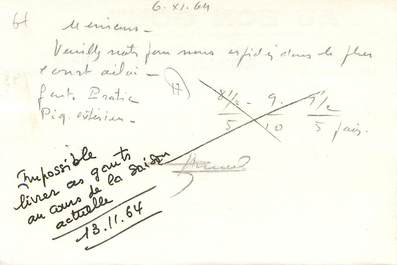 6.XI.64
Messieurs -
Veuillez nous faire expédier dans le plus
court délai -
gants Pratic
Piq. extérieur -
8 1/2 - 9 - 9 1/2
5 10 5 pairs.
Impossible
livrer ces gants
au cours de la saison
actuelle
13.11.64